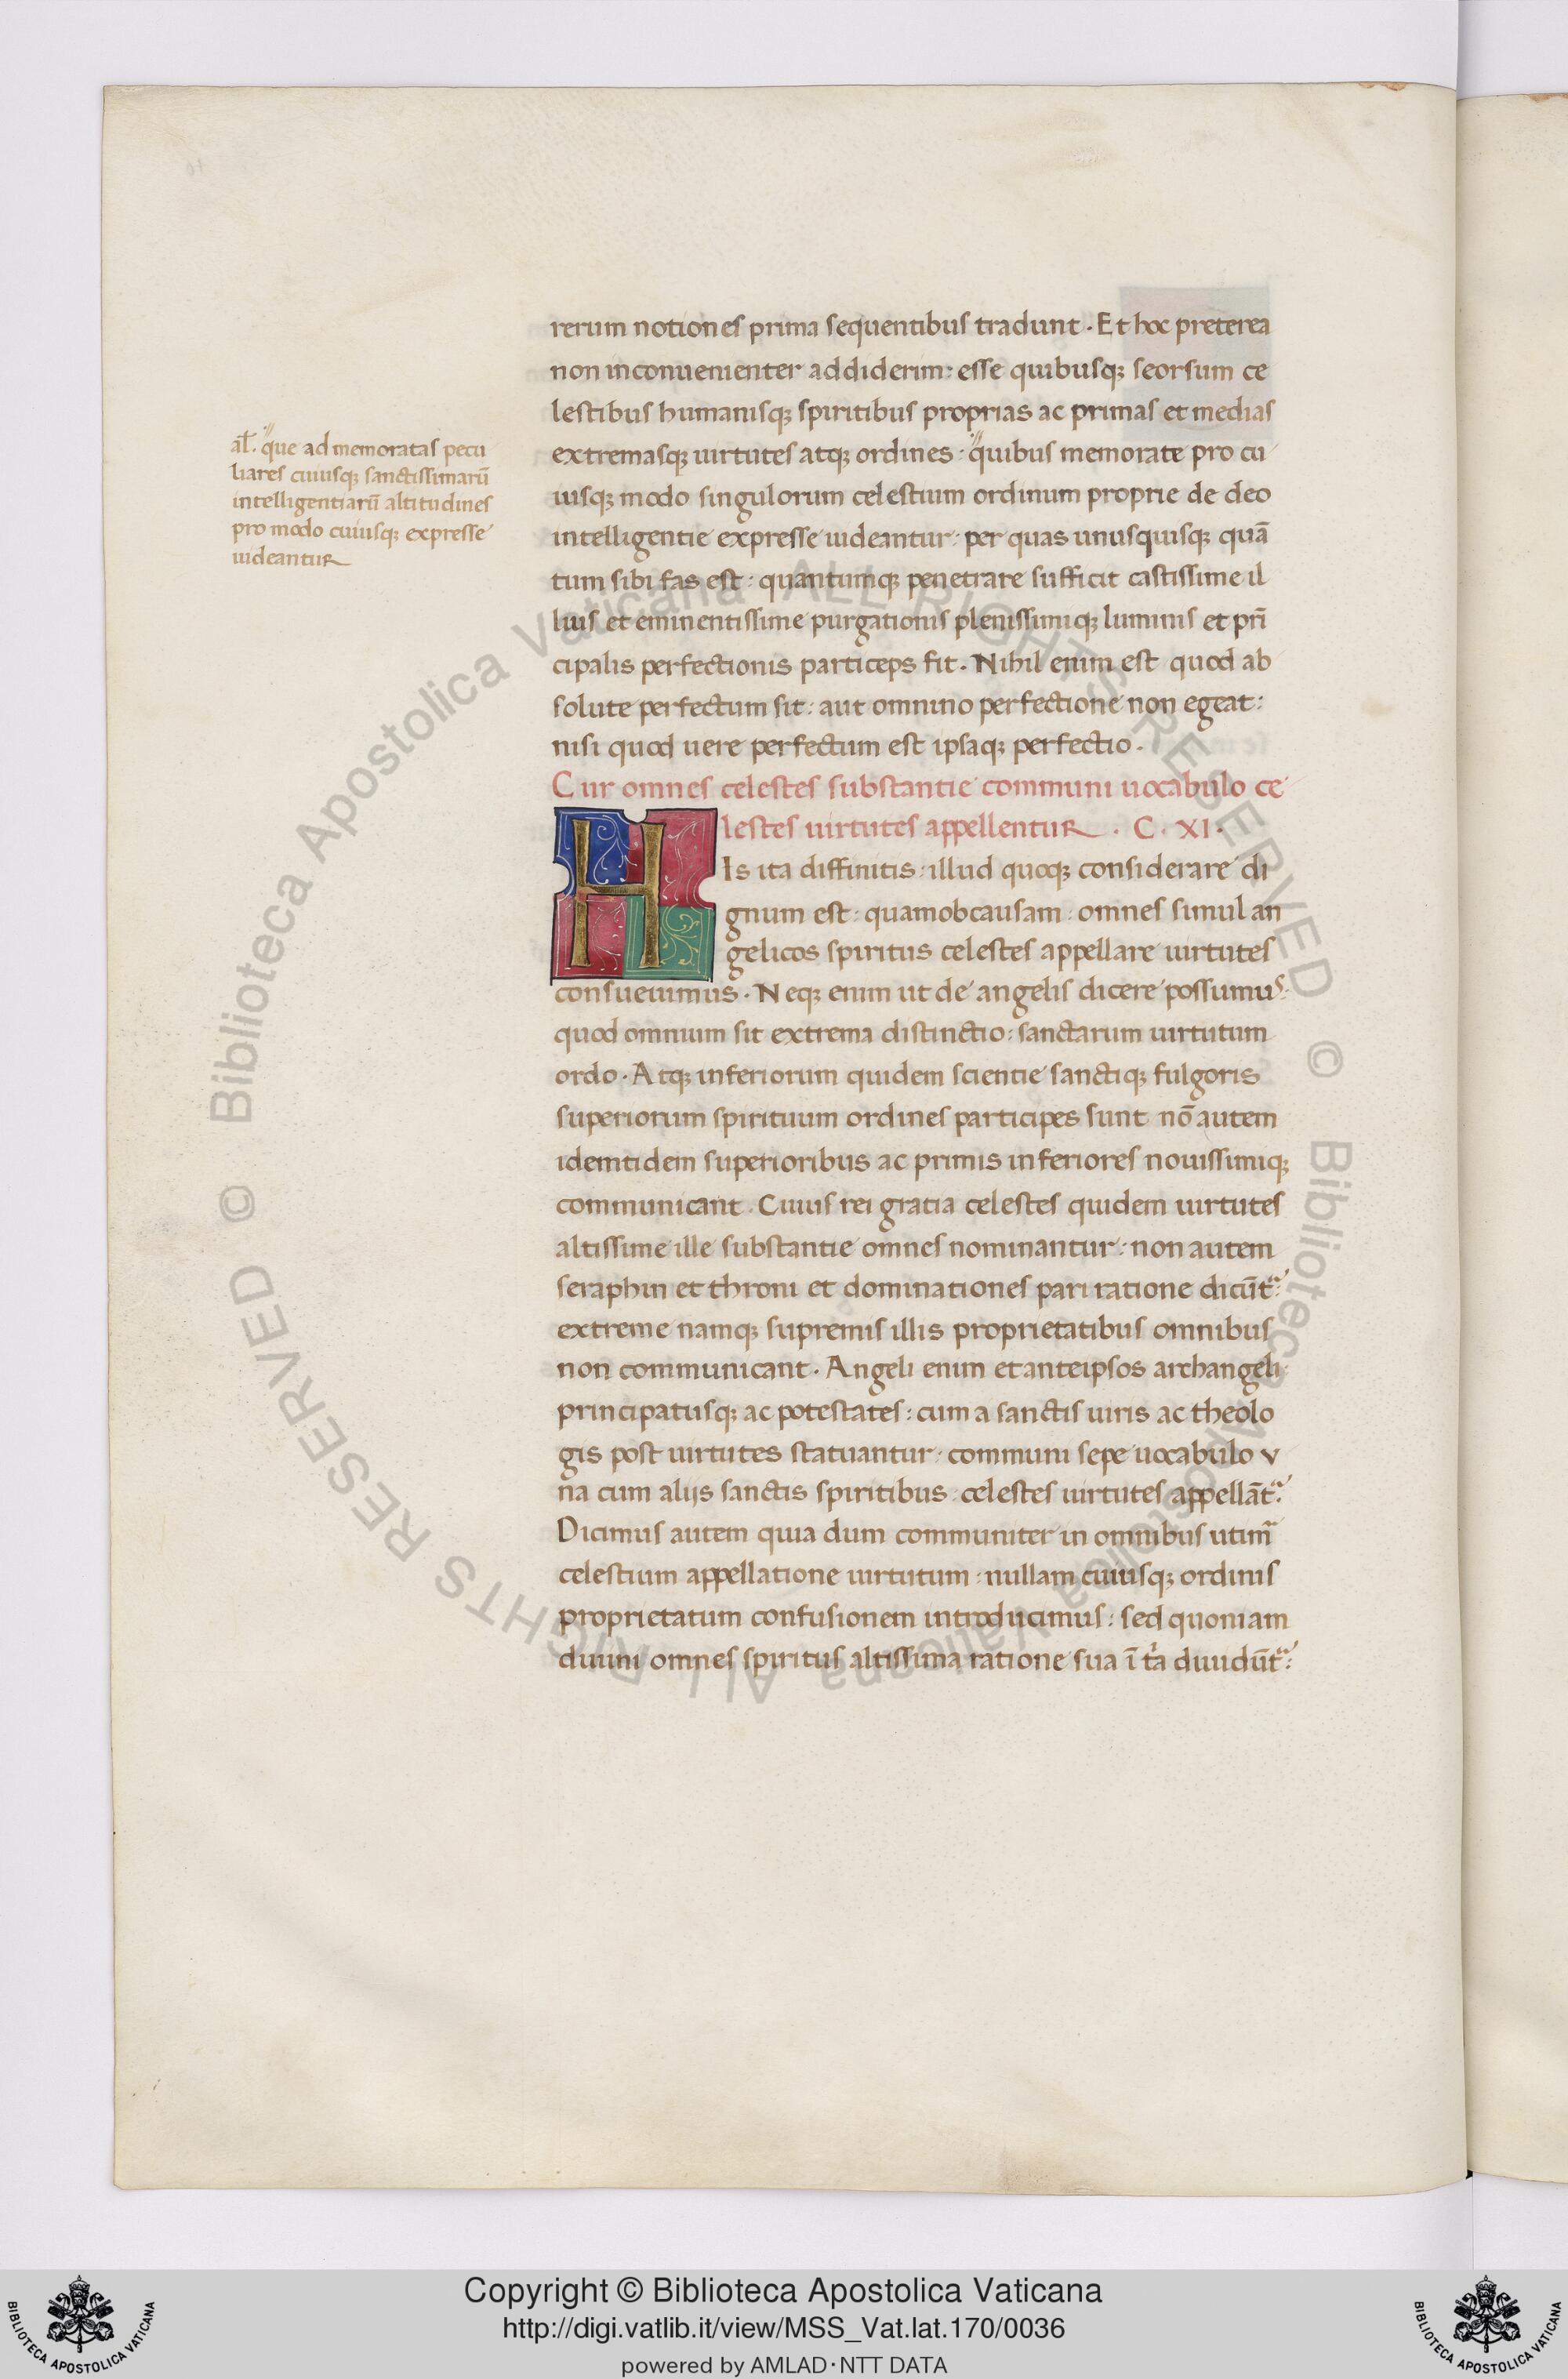 rerum notiones prima sequentibus tradunt · Et hoc preterea
non inconuenienter addiderim: esse quibusqꝫ seorsum ce
lestibus humanisqꝫ spiritibus proprias ac primas et medias
extremasqꝫ uirtutes atqꝫ ordines: "quibus memorate pro cu
iusqꝫ modo singulorum celestium ordinum proprie de deo
intelligentie expresse uideantur: per quas unusquisqꝫ quā
tum sibi fas est: quantumqꝫ penetrare sufficit castissime il
lius et eminentissime purgationis plenissimiqꝫ luminis et prī
cipalis perfectionis particeps fit. Nihil enim est quod ab
solute perfectum sit: aut omnino perfectione non egeat:
nisi quod uere perfectum est ipsaqꝫ perfectio.
al̄. "que ad memoratas pecu
liares cuiusqꝫ sanctissimarū
intelligentiarū altitudines
pro modo cuiusqꝫ expresse
uideantur
Cur omnes celestes substantie communi uocabulo ce
lestes uirtutes appellentur · C · XI ·
HIs ita diffinitis: illud quoqꝫ considerare di
gnum est: quamobcausam: omnes simul an
gelicos spiritus celestes appellare uirtutes
consueuimus · Neqꝫ enim ut de angelis dicere possumus:
quod omnium sit extrema distinctio: sanctarum uirtutum
ordo · Atqꝫ inferiorum quidem scientie sanctiqꝫ fulgoris
superiorum spirituum ordines participes sunt nō autem
idemtidem superioribus ac primis inferiores nouissimiqꝫ
communicant. Cuius rei gratia celestes quidem uirtutes
altissime ille substantie omnes nominantur: non autem
seraphin et throni et dominationes pari ratione dicūt᷑:
extreme namqꝫ supremis illis proprietatibus omnibus
non communicant · Angeli enim et anteipsos archangeli
principatusqꝫ ac potestates: cum a sanctis uiris ac theolo
gis post uirtutes statuantur: communi sepe uocabulo v
na cum alijs sanctis spiritibus: celestes uirtutes appellāt᷑:
Dicimus autem quia dum communiter in omnibus utim᷑
celestium appellatione uirtutum: nullam cuiusqꝫ ordinis
proprietatum confusionem introducimus: sed quoniam
diuini omnes spiritus altissima ratione sua ī tⁱa diuidūt᷑:
Copyright © Biblioteca Apostolica Vaticana
http://digi.vatlib.it/view/MSS_Vat.lat.170/0036
powered by AMLAD·NTT DATA
BIBLIOTECA APOSTOLICA VATICANA
BIBLIOTECA APOSTOLICA VATICANA
© Biblioteca Apostolica Vaticana ALL RIGHTS RESERVED © Biblioteca Apostolica Vaticana ALL RIGHTS RESERVED